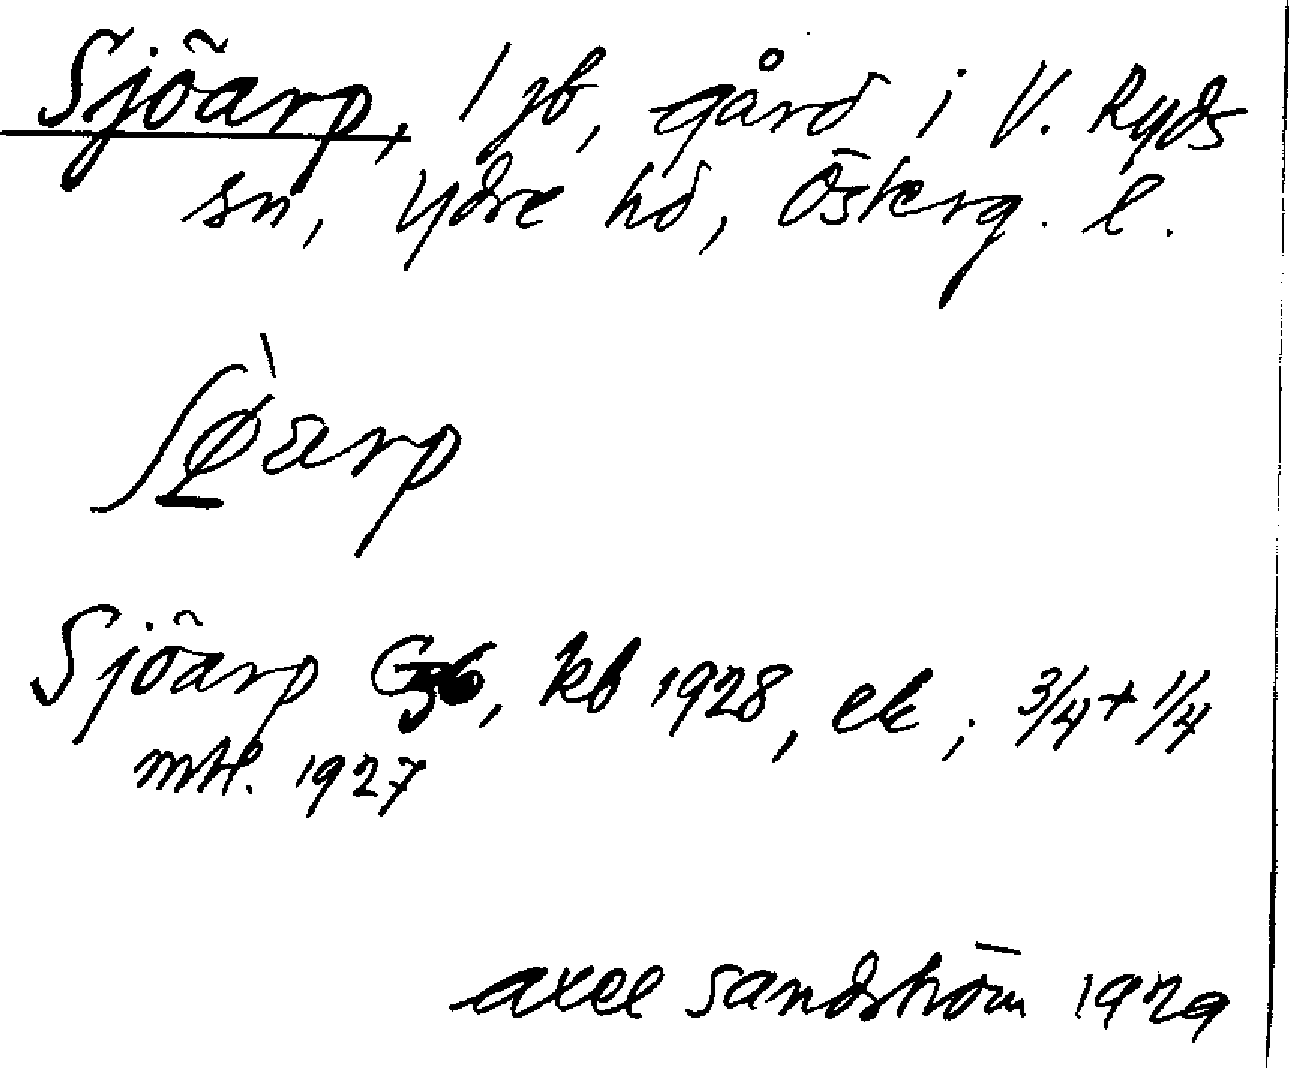 Sjöarp, 1 jb, gård i V. Ryds
sn, Ydre hd, Österg. l.
ʃø̀arp
Sjöarp Gjb, kb 1928, ek; 3/4 + 1/4
mtl. 1927
Axel Sandström 1929